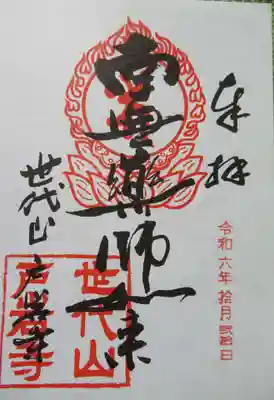 奉拝
令和六年拾月
南無薬師如来
世代山 戸岩寺
世代山
戸岩寺